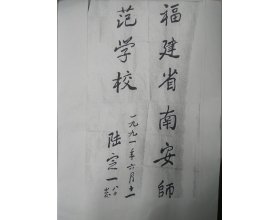 福建省南安師
范学校
一九九一年六月十一
陆定一